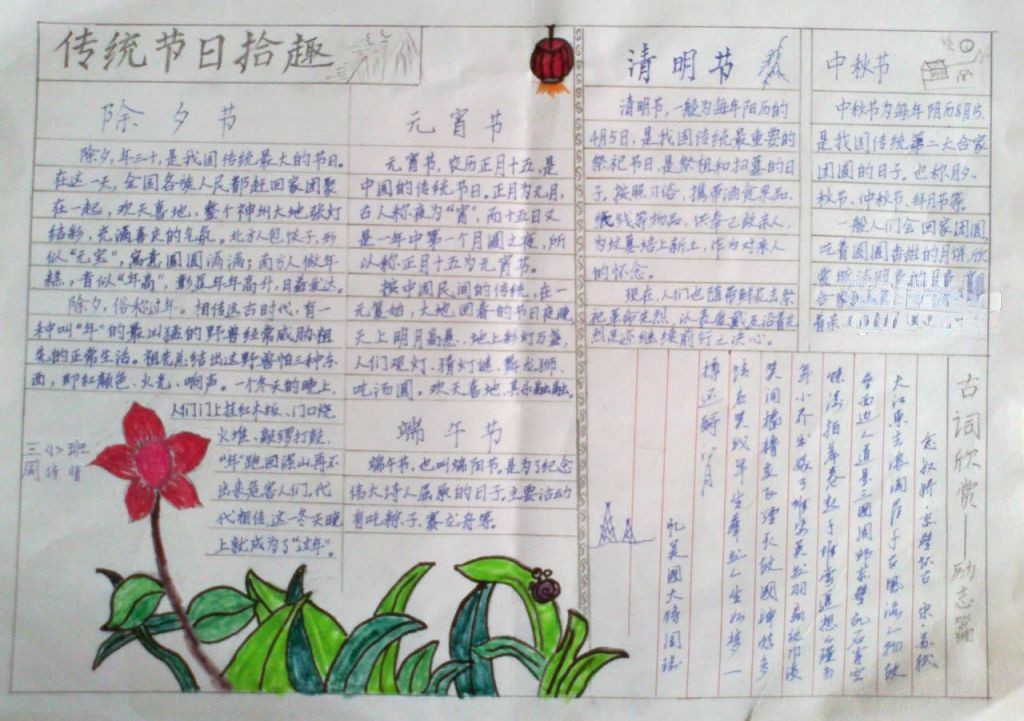 传统节日拾趣
除夕节
除夕,年三十,是我国传统最大的节日。
在这一天,全国各族人民都赶回家团聚
在一起,欢天喜地,整个神州大地张灯
结彩,充满喜庆的气氛。北方人包饺子,形
似“元宝”,寓意圆圆满满;南方人做年
糕,音似“年高”,彰显年年高升,日益发达。
除夕,俗称过年。相传远古时代,有一
种叫“年”的最凶猛的野兽经常威胁祖
先的正常生活。祖先总结出这野兽怕三种东
西,即红颜色、火光、响声。一个冬天的晚上,
人们门上挂红木板、门口烧
火堆、敲锣打鼓,
“年”跑回深山再不
出来危害人们。代
代相传,这一冬天晚
上就成为了“过年”。
三班
周诗晴
元宵节
元宵节,农历正月十五,是
中国的传统节日。正月为元月,
古人称夜为“宵”,而十五日又
是一年中第一个月圆之夜,所
以称正月十五为元宵节。
按中国民间的传统,在一
元复始,大地回春的节日夜晚,
天上明月高悬,地上彩灯万盏,
人们观灯、猜灯谜、舞龙狮、
吃汤圆。欢天喜地,其乐融融。
端午节
端午节,也叫端阳节,是为了纪念
伟大诗人屈原的日子。主要活动
有吃粽子、赛龙舟等。
清明节
清明节,一般为每年阳历的
4月5日,是我国传统最重要的
祭祀节日,是祭祖和扫墓的日
子。按照习俗,携带酒食果品、
纸钱等物品,供奉已故亲人,
为坟墓培上新土,作为对亲人
的怀念。
现在,人们也随带鲜花去祭
祀革命先烈,以表爱戴及沿着先
烈足迹继续前行之决心。
中秋节
中秋节为每年阴历8月15,
是我国传统第二大合家
团圆的日子。也称月夕、
秋节、仲秋节、拜月节等。
一般人们会回家团圆,
吃着圆圆香甜的月饼,欣
赏
合家
着来
古词欣赏——励志篇
念奴娇·赤壁怀古 宋·苏轼
大江東去浪淘尽千古風流人物故
壘西边人道是三國周郎赤壁乱石穿空
惊涛拍岸卷起千堆雪遥想公瑾当
年小乔初嫁了雄姿英发羽扇纶巾谈
笑间樯橹灰飞烟灭故國神游多
情应笑我早生華发人生如梦一
樽还酹江月